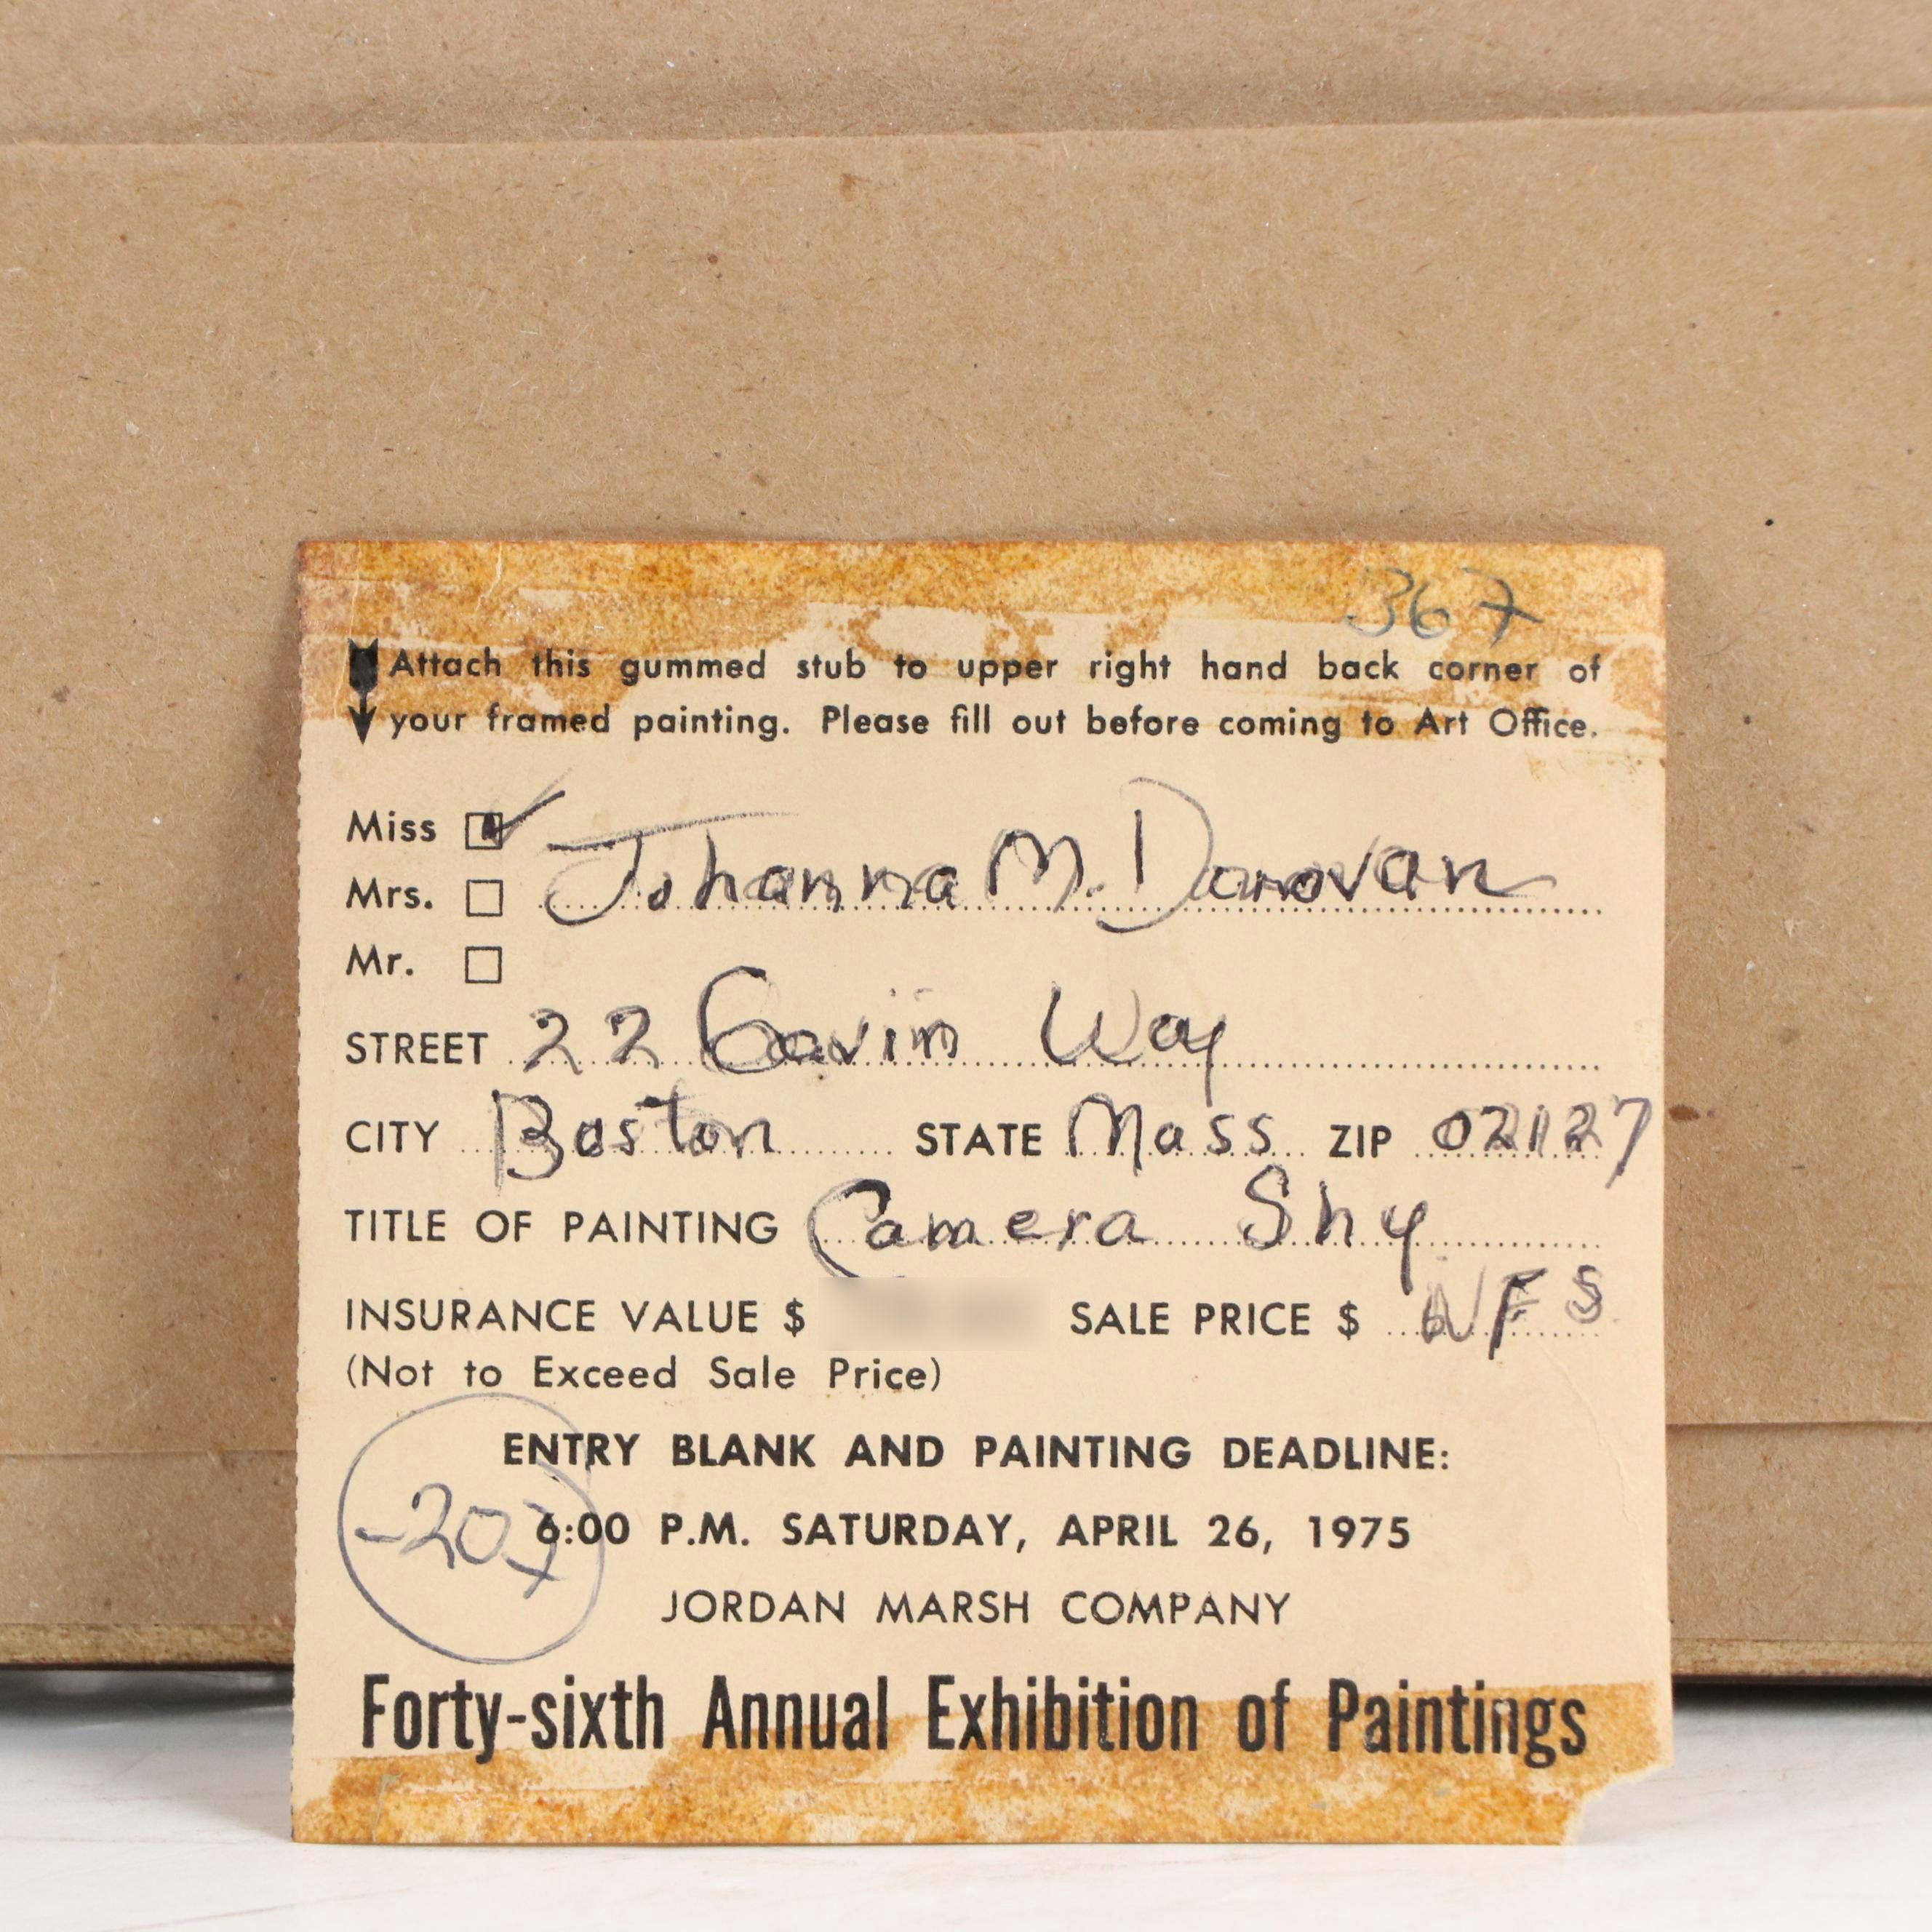 367
Attach this gummed stub to upper right hand back corner of
your framed painting. Please fill out before coming to Art Office.
Miss
Johanna M. Donovan
Mrs.
Mr.
STREET 22 Gavin Way
CITY Boston STATE Mass ZIP 02127
TITLE OF PAINTING Camera Shy
INSURANCE VALUE $ SALE PRICE $ NFS
(Not to Exceed Sale Price)
ENTRY BLANK AND PAINTING DEADLINE:
-207
6:00 P.M. SATURDAY, APRIL 26, 1975
JORDAN MARSH COMPANY
Forty-sixth Annual Exhibition of Paintings